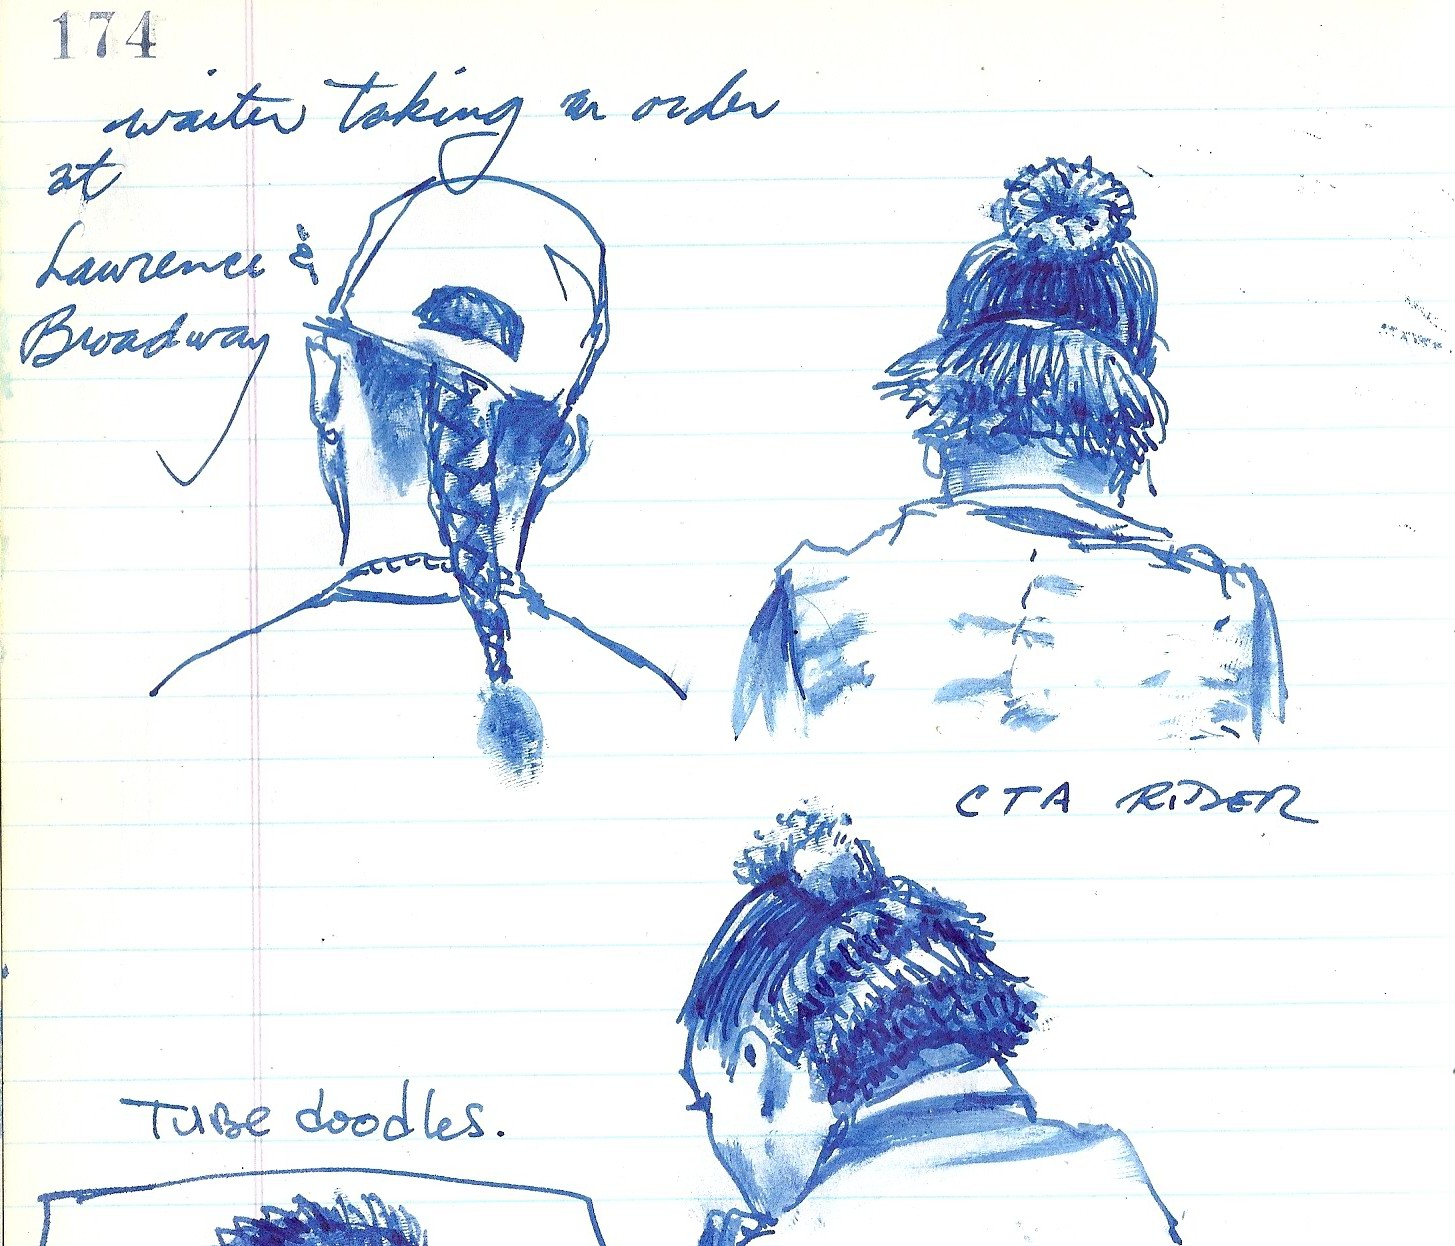 174
waiter taking an order
at
Lawrence &
Broadway
CTA RIDER
TUBE doodles.